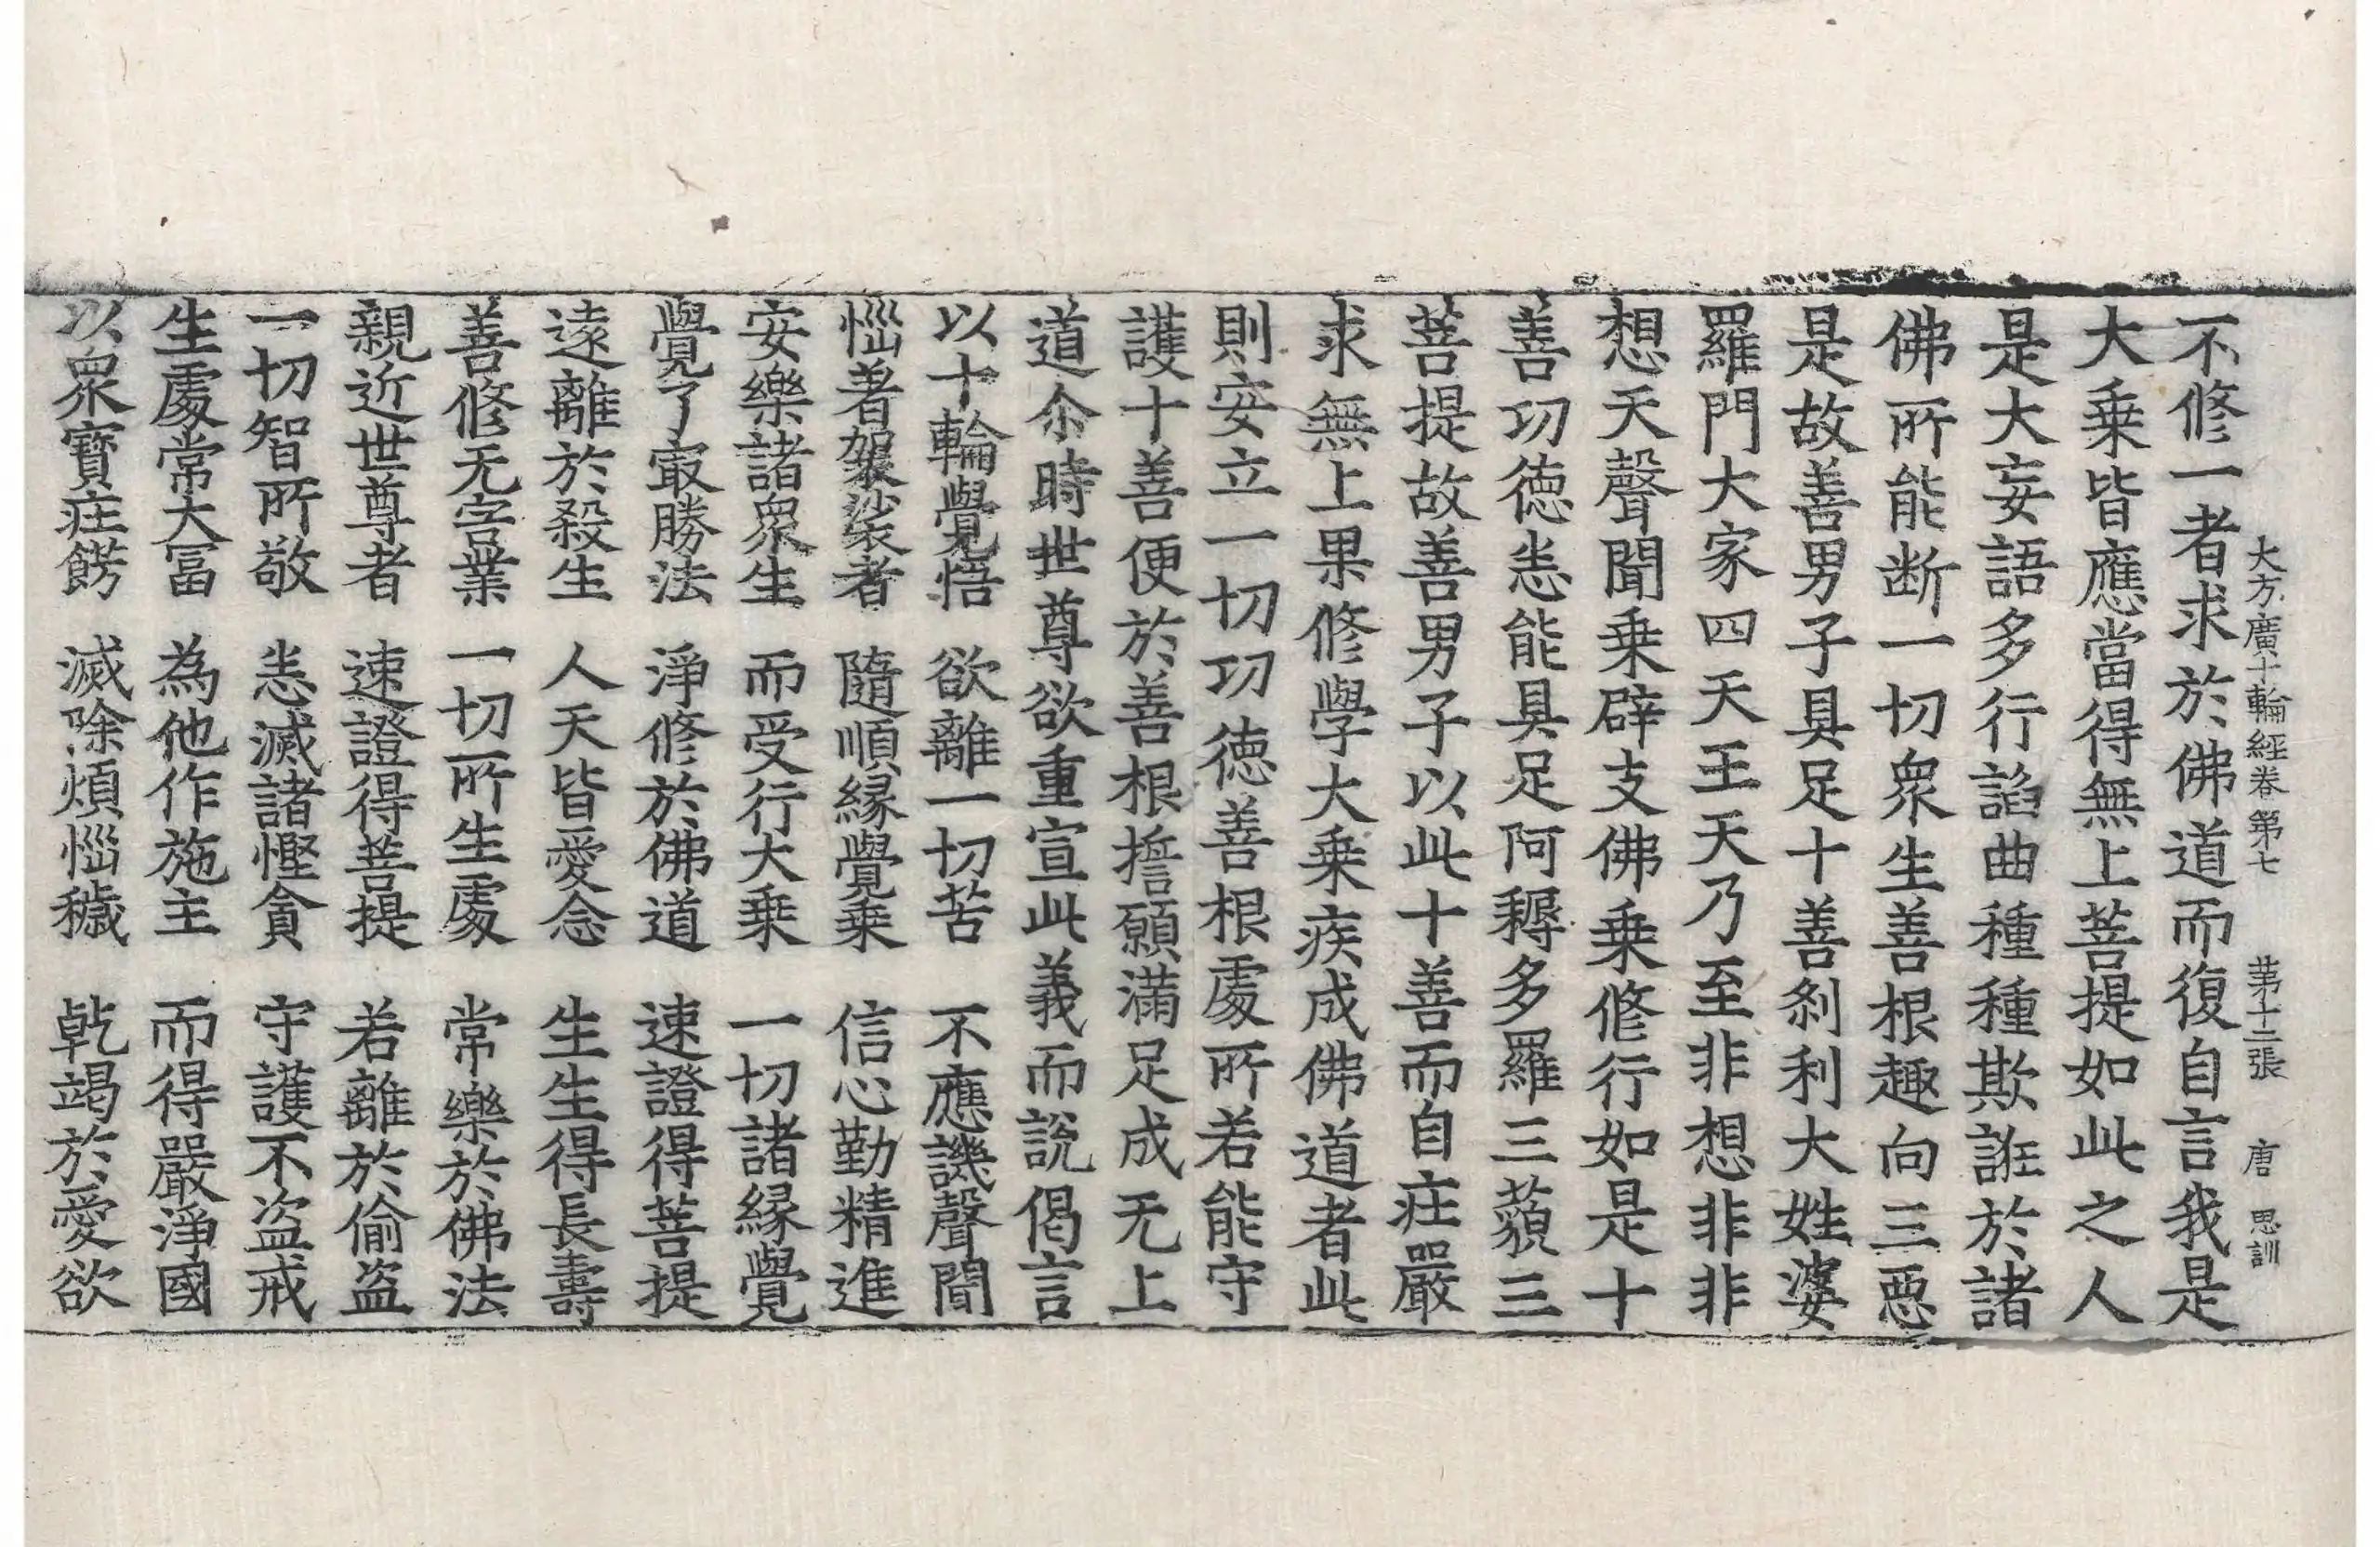 大方廣十輪經卷第七　第十三張　唐　思訓
不修一者求於佛道而復自言我是
大乗皆應當得無上菩提如此之人
是大妄語多行諂曲種種欺誑於諸
佛所能断一切衆生善根趣向三惡
是故善男子具足十善刹利大姓婆
羅門大家四天王天乃至非想非非
想天聲聞乗辟支佛乗修行如是十
善功徳悉能具足阿耨多羅三藐三
菩提故善男子以此十善而自庄嚴
求無上果修學大乗疾成佛道者此
則安立一切功徳善根處所若能守
護十善便於善根擔願滿足成无上
道尒時世尊欲重宣此義而說偈言
以十輪覺悟　欲離一切苦　不應譏聲聞
惱著袈裟者　隨順縁覺乗　信心勤精進
安樂諸衆生　而受行大乗　一切諸縁覺
覺了㝡勝法　淨修於佛道　速證得菩提
遠離於殺生　人天皆愛念　生生得長壽
善修无害業　一切所生處　常樂於佛法
親近世尊者　速證得菩提　若離於偷盗
一切智所敬　悉滅諸慳貪　守護不盗戒
生處常大冨　為他作施主　而得嚴淨國
以衆寶庄餝　滅除煩惱穢　乾竭於愛欲